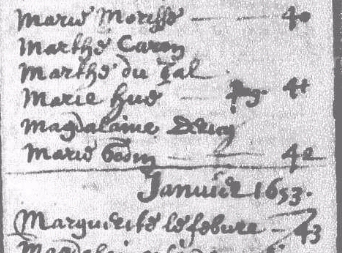 Marie Morisse — 40
Marthe Caron
Marthe du Val
Marie hue — 41
Magdalaine
Marie — 42
Januier 1653.
Marguerite lefebure - 43
Magdalaine